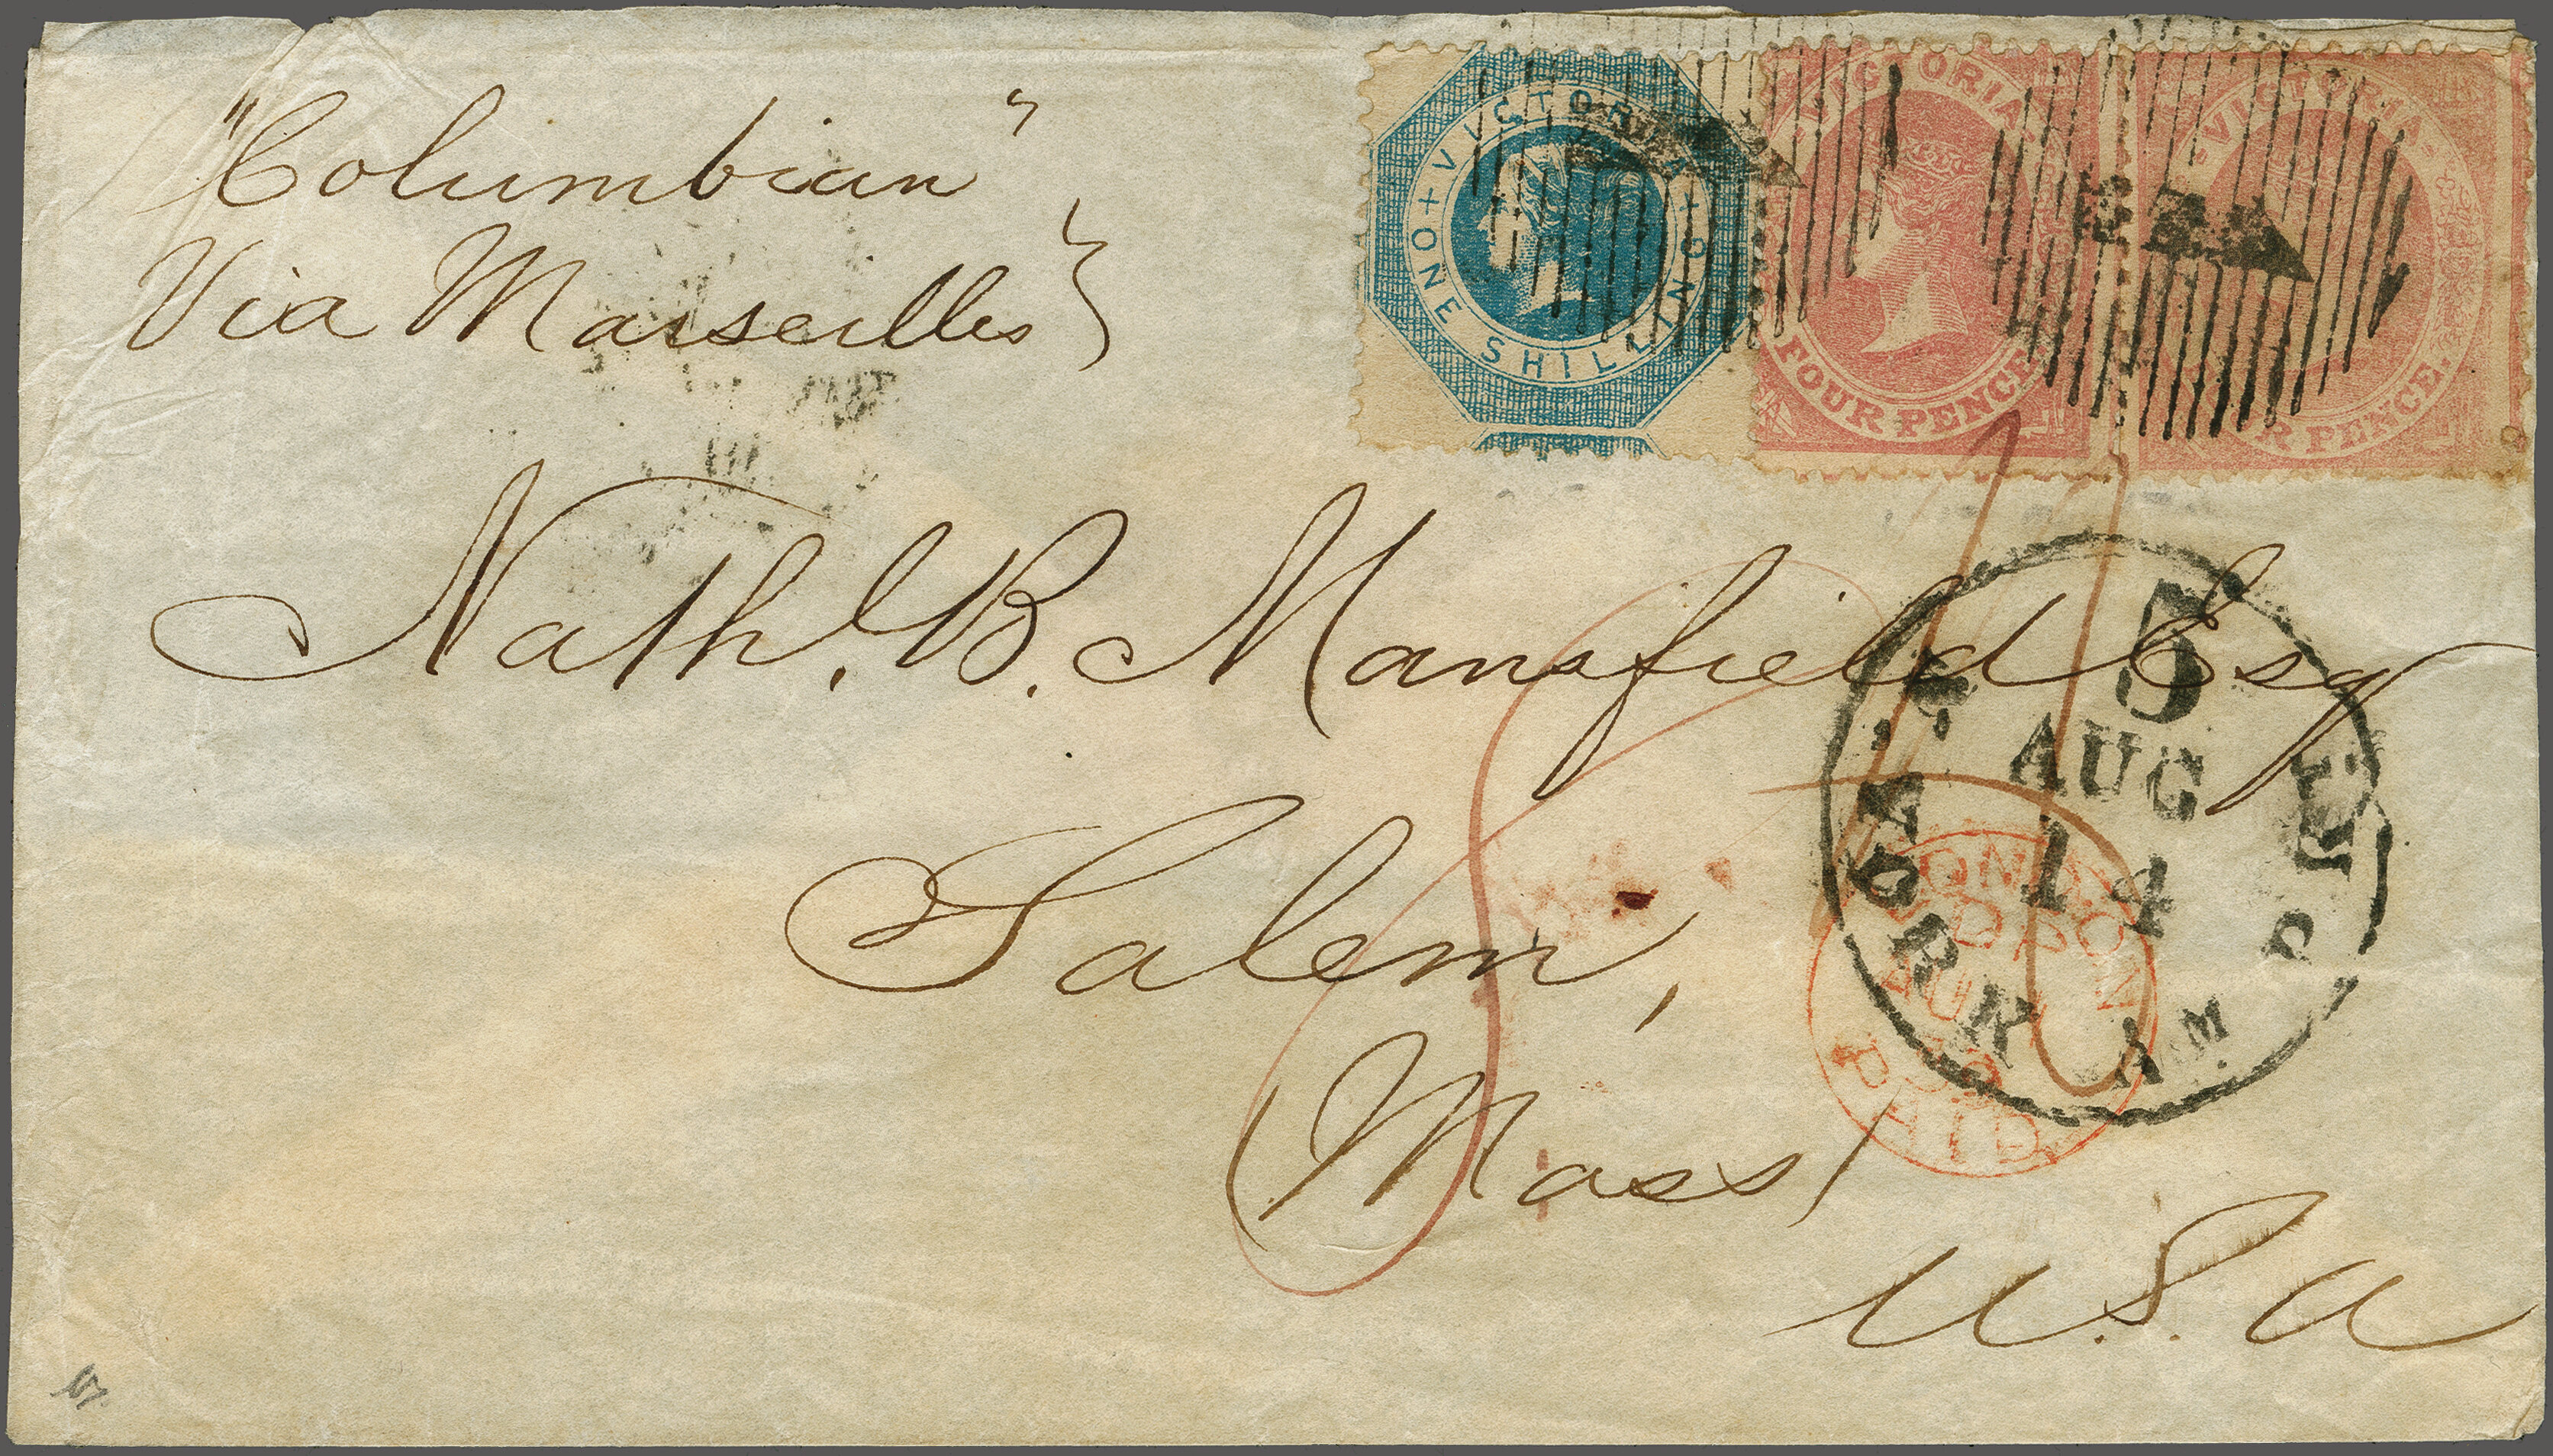 "Columbian"
Via Marseilles
+ VICTORIA +
ONE SHILLING
VICTORIA
FOUR PENCE
VICTORIA
FOUR PENCE.
Nath. B. Mansfield Esq
Salem,
Mass
U.S.A
5
AUG
14
AM
PKT
LONDON
PAID